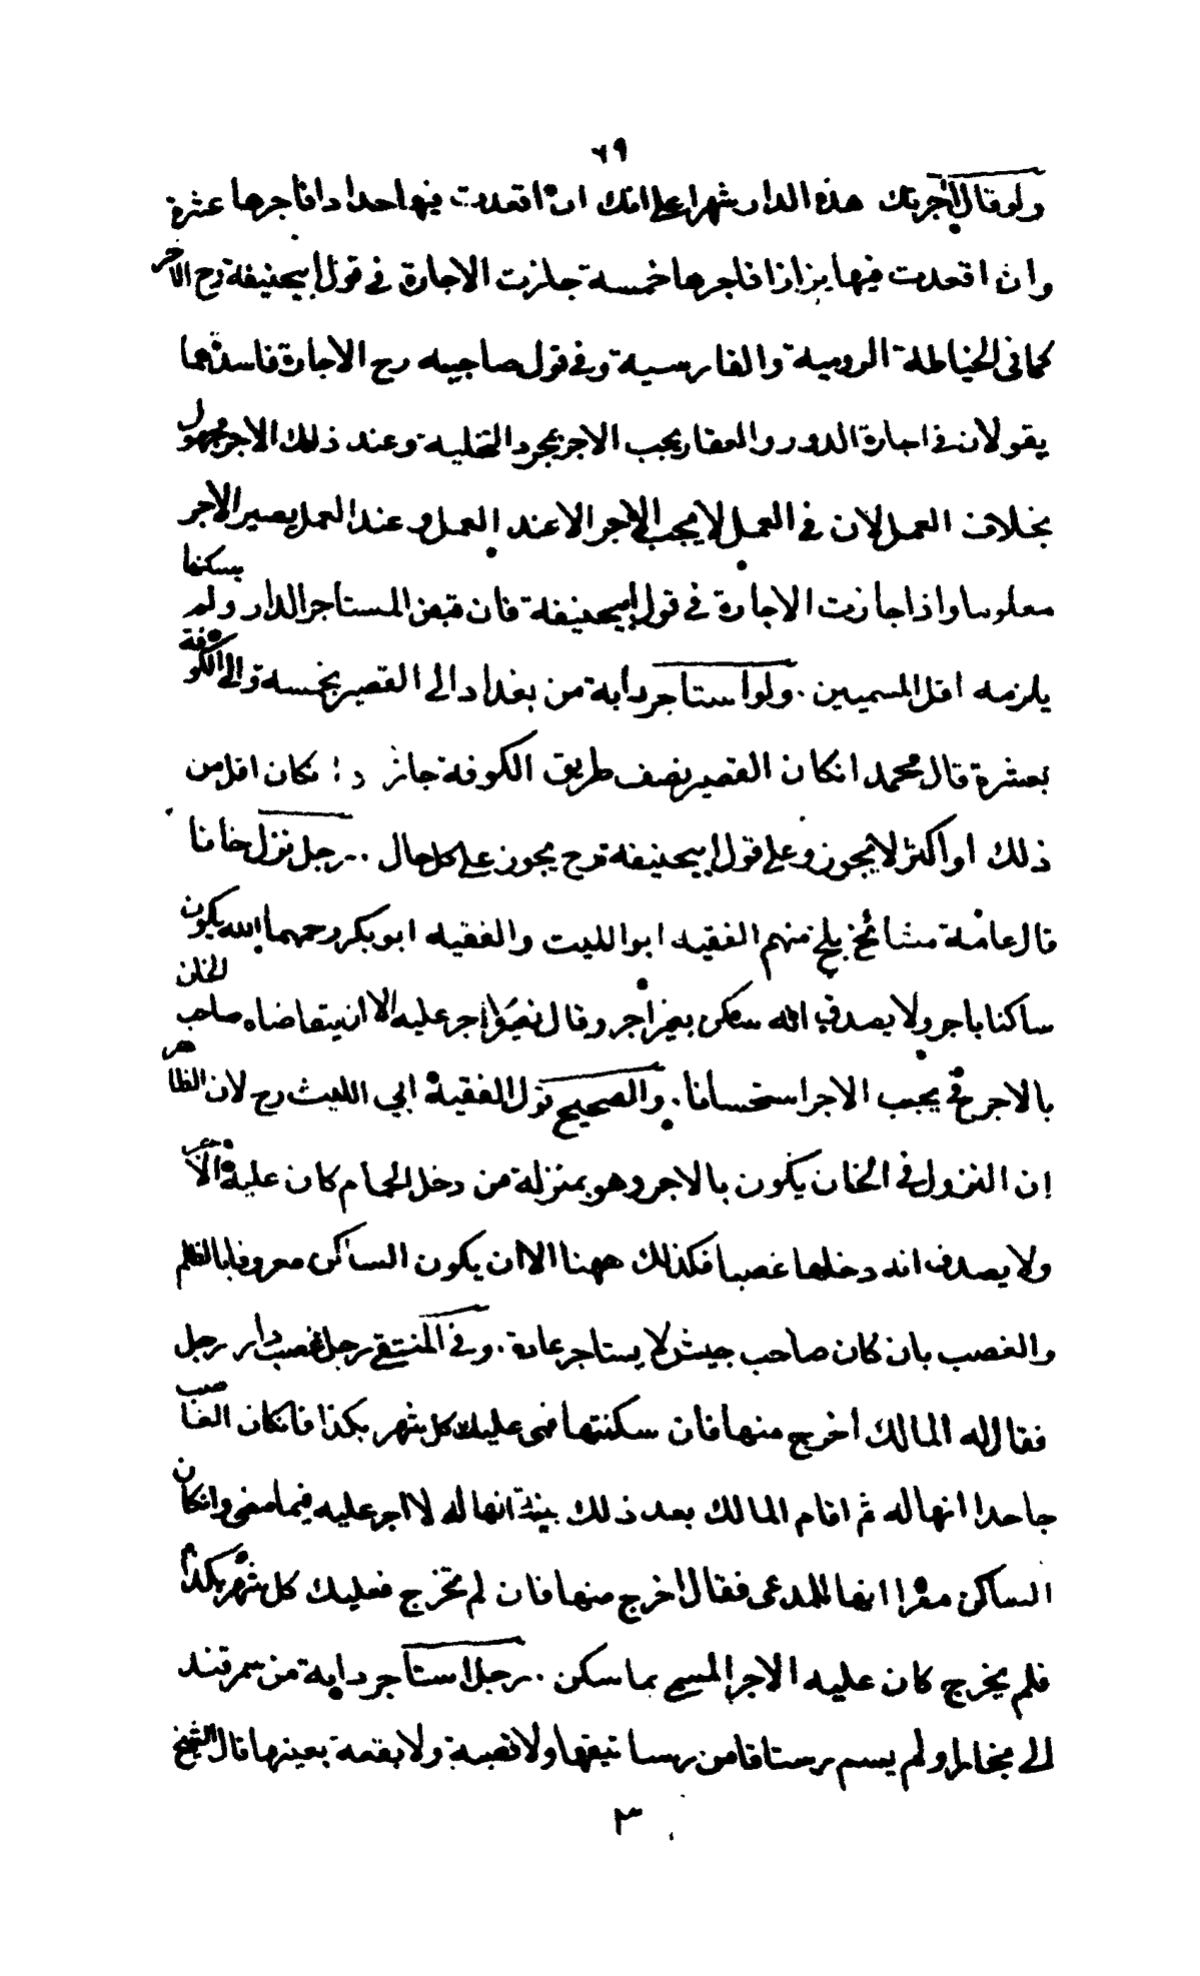 ٦٩
ولو قال اجرتك هذه الدار شهرا على انك ان اقعدت فيها حدادا فاجرها عشرة
وان اقعدت فيها بزازا فاجرها خمسة جازت الاجارة في قول ابيحنيفة رح الاخر
كما في الخياطة الرومية والفارسية وفي قول صاحبيه رح الاجارة فاسدة هما
يقولان في اجارة الدور والعقار يجب الاجر بمجرد التخلية وعند ذلك الاجر مجهول
بخلاف العمل لان في العمل لا يجب الاجر الا عند العمل وعند العمل يصير الاجر
معلوما واذا جازت الاجارة في قول ابيحنيفة فان قبض المستاجر الدار ولم يسكنها
يلزمه اقل المسميين . ولو استاجر دابة من بغداد الى القصير بخمسة والى الكوفة
بعشرة قال محمد انكان القصير نصف طريق الكوفة جاز و ان كان اقل من
ذلك او اكثر لا يجوز وعلى قول ابيحنيفة رح يجوز على كل حال . . رجل نزل خانا
قال عامة مشائخ بلخ منهم الفقيه ابو الليث والفقيه ابو بكر رحمهما الله يكون
ساكنا باجر ولا يصدق انه سكن بغير اجر وقال نصير لا اجر عليه الا ان يتقاضاه صاحب الخان
بالاجر فح يجب الاجر استحسانا . والصحيح قول الفقيه ابي الليث رح لان الظاهر
ان النزول في الخان يكون بالاجر وهو بمنزلة من دخل الحمام كان عليه الاجر
ولا يصدق انه دخلها غصبا فكذلك ههنا الا ان يكون الساكن معروفا بالظلم
والغصب بان كان صاحب جيش لا يستاجر عادة . وفي المنتقى رجل غصب دار رجل
فقال له المالك اخرج منها فان سكنتها فهى عليك كل شهر بكذا فانكان الغاصب
جاحدا انها له ثم اقام المالك بعد ذلك بينة انها له لا اجر عليه فيما مضى وانكان
الساكن مقرا انها للمدعى فقال اخرج منها فان لم تخرج فعليك كل شهر بكذا
فلم يخرج كان عليه الاجر المسمى بما سكن . رجل استاجر دابة من سمرقند
الى بخارا ولم يسم رستاقا من رساتيقها ولا قصبة ولا بقعة بعينها قال الشيخ
٣